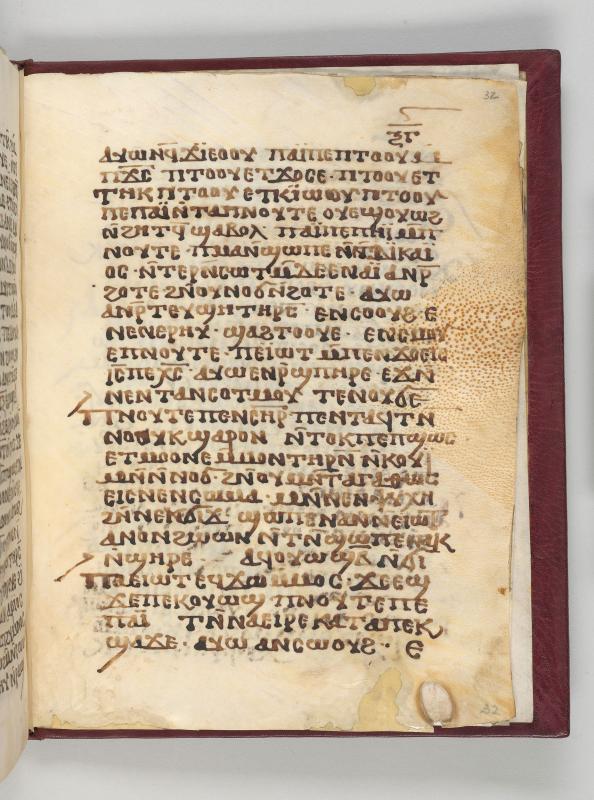 32
ⲝⲅ
ⲁⲩⲱⲛϥϫⲓⲉⲟⲟⲩ ⲡⲁⲓⲡⲉⲡⲧⲟⲟⲩ
ⲡⲭ̅ⲥ̅ ⲡⲧⲟⲟⲩⲉⲧϫⲟⲥⲉ· ⲡⲧⲟⲟⲩⲉⲧ
ⲧⲏⲕ ⲡⲧⲟⲟⲩ ⲉⲧⲕⲓⲱⲟⲩ ⲡⲧⲟⲟⲩ
ⲡⲉⲡⲁⲓ̈ⲛ̅ⲧⲁⲡⲛⲟⲩⲧⲉ ⲟⲩⲉϣⲟⲩⲱϩ
ⲛ̅ϩⲏⲧϥ ϣⲁⲃⲟⲗ ⲡⲁⲓ̈ⲡⲉⲡⲏⲓ̈ⲙ̅ⲡ
ⲛⲟⲩⲧⲉ ⲡⲙⲁⲛ̅ϣⲱⲡⲉⲛ̅ⲛ̅ⲇⲓⲕⲁⲓ
ⲟⲥ· ⲛ̅ⲧⲉⲣⲛ̅ⲥⲱⲧⲙ̅ⲇⲉⲉⲛⲁⲓ̈ ⲁⲛⲣ̅
ϩⲟⲧⲉ ϩⲛ̅ⲟⲩⲛⲟϭⲛ̅ϩⲟⲧⲉ· ⲁⲩⲱ
ⲁⲛⲣ̅ⲧⲉⲩϣⲏⲧⲏⲣⲥ̅ ⲉⲛⲥⲟⲟⲩϩ ⲉ
ⲛⲉⲛⲉⲣⲏⲩ· ϣⲁϩⲧⲟⲟⲩⲉ· ⲉⲛⲥⲙⲟⲩ
ⲉⲡⲛⲟⲩⲧⲉ· ⲡⲉⲓ̈ⲱⲧ ⲙ̅ⲡⲉⲛϫⲟⲉⲓⲥ
ⲓ̅ⲥ̅ⲡⲉⲭ̅ⲥ̅ ⲁⲩⲱⲉⲛⲣ̅ϣⲡⲏⲣⲉ ⲉϫⲛ̅
ⲛⲉⲛⲧⲁⲛⲥⲟⲧⲙⲟⲩ ⲧⲉⲛⲟⲩϭⲉ
ⲡⲛⲟⲩⲧⲉⲡⲉⲛⲥⲏⲣ̅ ⲡⲉⲛⲧⲁⲕⲧⲛ̅
ⲛⲟⲟⲩⲕϣⲁⲣⲟⲛ ⲛ̅ⲧⲟⲕⲡⲉⲡϣⲱⲥ
ⲉⲧⲙⲟⲟⲛⲉⲙ̅ⲙⲟⲛⲧⲏⲣⲛ̅ ⲛ̅ⲕⲟⲩⲓ
ⲙⲛ̅ⲛ̅ⲛⲟϭ· ϩⲛ̅ⲟⲩⲙⲛ̅ⲧⲁⲅⲁⲑⲟⲥ
ⲉⲓⲥⲛⲉⲛⲥⲱⲙⲁ ⲙⲛ̅ⲛⲉⲛⲯⲩⲭⲏ
ϩⲛ̅ⲛⲉⲕϭⲓϫ ϣⲱⲡⲉⲛⲁⲛⲛ̅ⲉⲓⲱⲧ
ⲁⲛⲟⲛϩⲱⲱⲛ ⲛ̅ⲧⲛ̅ϣⲱⲡⲉⲛⲁⲕ
ⲛ̅ϣⲏⲣⲉ ⲁϥⲟⲩⲱϣⲃ̅ ⲛ̅ϭⲓ
ⲡⲁⲉⲓⲱⲧ ⲉϥϫⲱⲙ̅ⲙⲟⲥ· ϫⲉⲉϣ
ϫⲉⲡⲉⲕⲟⲩⲱϣ ⲡⲛⲟⲩⲧⲉⲡⲉ
ⲡⲁⲓ̈ ⲧⲛ̅ⲛⲁⲉⲓⲣⲉⲕⲁⲧⲁⲡⲉⲕ
ϣⲁϫⲉ· ⲁⲩⲱ ⲁⲛⲥⲱⲟⲩϩ· ⲉ
32